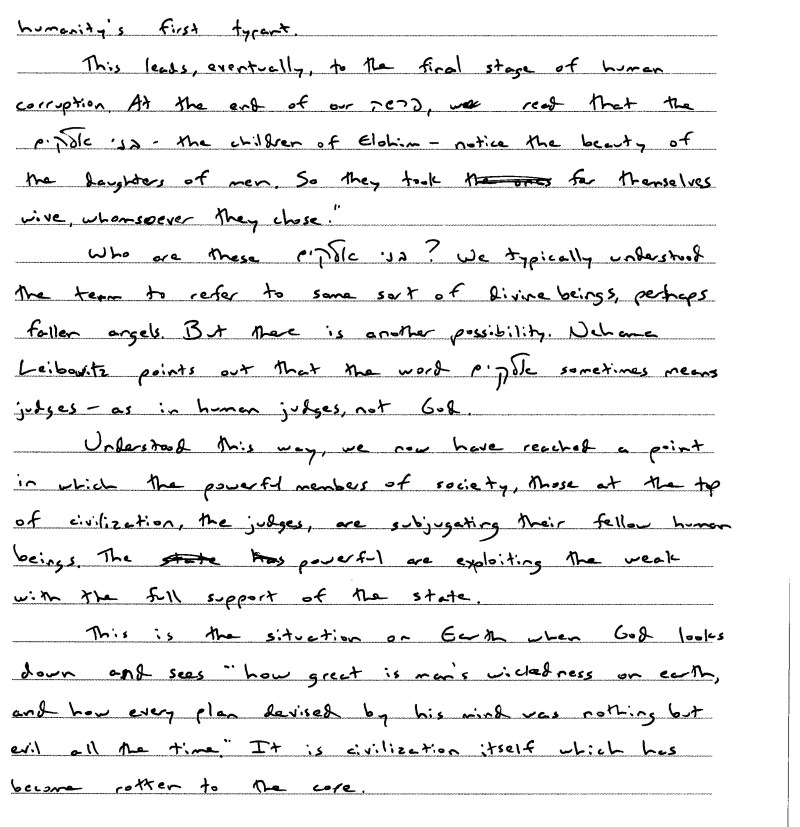 humanity's first tyrant.
This leads, eventually, to the final stage of human
corruption. At the end of our פרשה, we read that the
בני אלקים - the children of Elohim - notice the beauty of
the daughters of men. So they took the ones for themselves
wive, whomsoever they chose."
Who are these בני אלקים? We typically understood
the term to refer to some sort of divine beings, perhaps
fallen angels. But there is another possibility. Nehama
Leibowitz points out that the word אלקים sometimes means
judges - as in human judges, not God.
Understood this way, we now have reached a point
in which the powerful members of society, those at the top
of civilization, the judges, are subjugating their fellow human
beings. The state has powerful are exploiting the weak
with the full support of the state.
This is the situation on Earth when God looks
down and sees "how great is man's wickedness on earth,
and how every plan devised by his mind was nothing but
evil all the time." It is civilization itself which has
become rotten to the core.